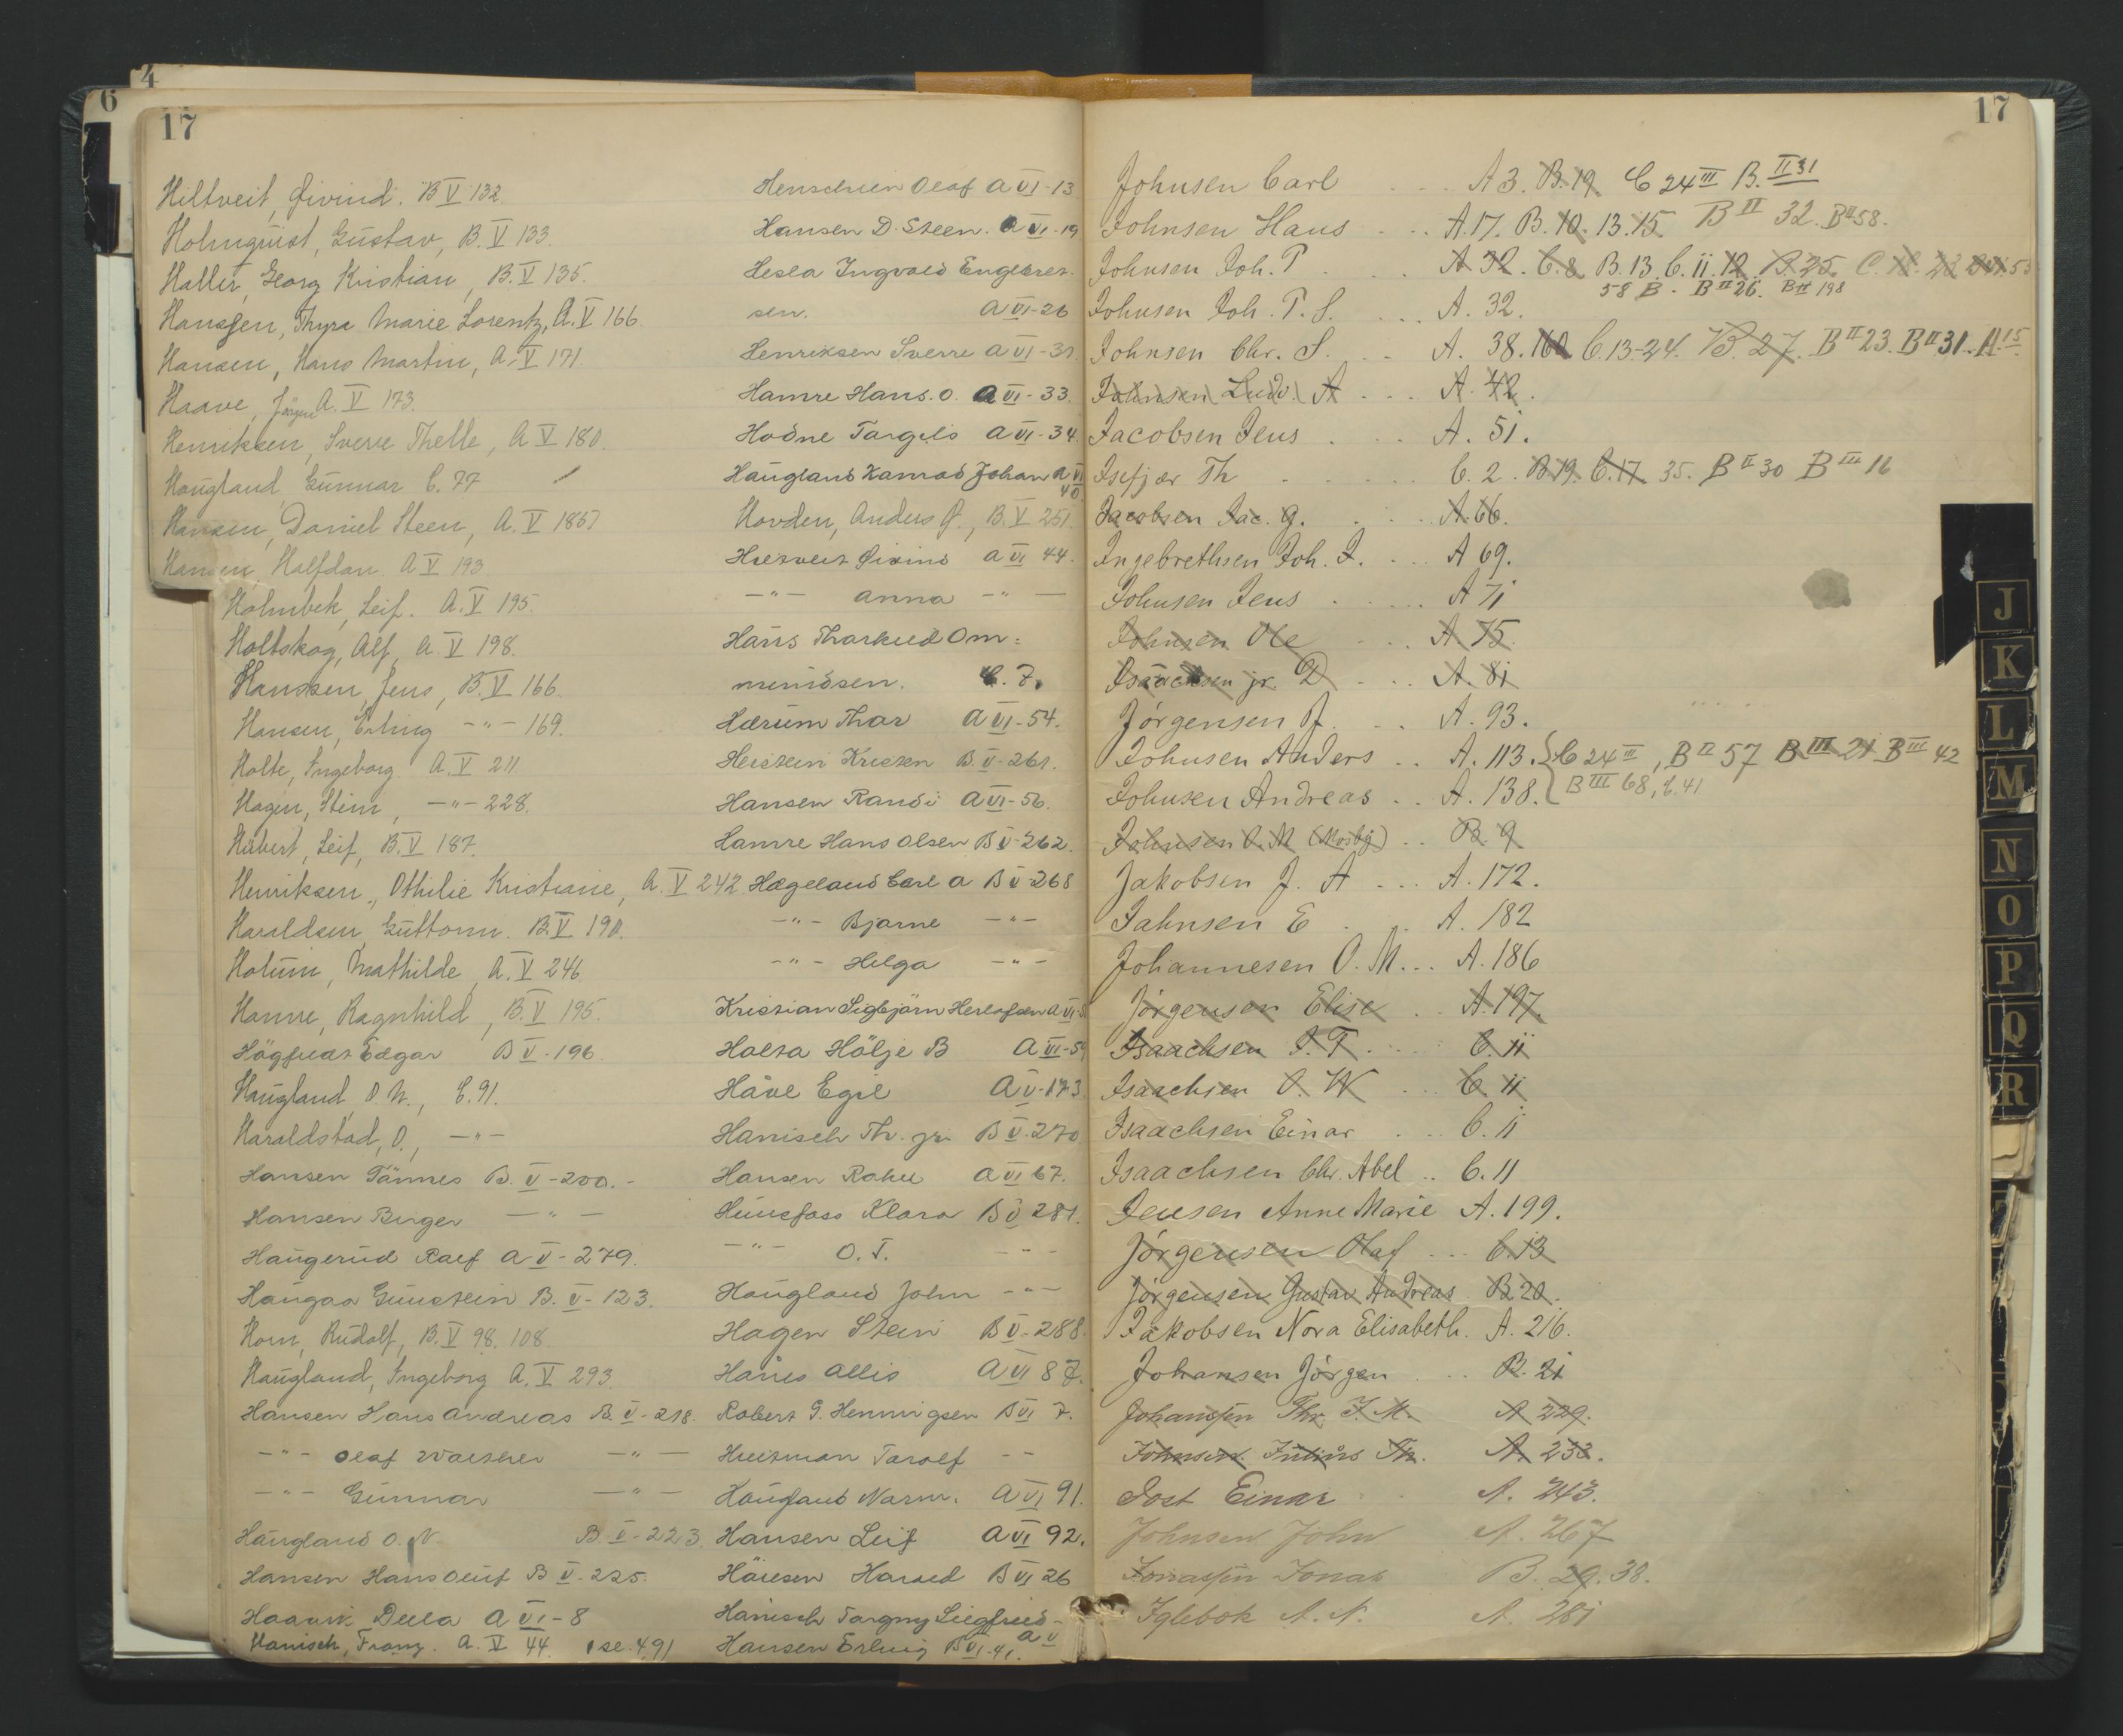 6
4
17
Hiltveit, Øivind. B V 132.
Holmquist, Gustav, B. V 133.
Haller, Georg Kristian, B. V 135.
Hansen, Thyra Marie Lorentz, A. V 166.
Hansen, Hans Martin, A. V 171.
Haave, Jörgen A. V 173.
Henriksen, Sverre Thelle, A V 180.
Haugland Gunnar C. 77
Hansen, Daniel Steen, A. V 186
Hansen, Halfdan. A V 193
Holmbek, Leif. A. V 195.
Holtskog, Alf, A. V 198.
Hanssen, Jens, B. V 166.
Hansen, Erling -"- 169.
Holte, Ingeborg A. V 211
Hagen, Stein, -"- 228.
Hübert, Leif, B. V 187.
Henriksen, Othilie Kristiane, A. V 242
Haraldsen, Guttorm. B. V 190.
Holum, Mathilde, A. V 246
Hamre, Ragnhild, B. V 195.
Edgar B V - 196.
Haugland, O N., C. 91.
Haraldstad, O., -"-
Hansen Tännes B. V - 200. -
Hansen Birger -"-
Haugerud Ralf A V - 279.
Haugaa Gunstein B. V - 123.
Horn, Rudolf, B. V 98. 108.
Haugland, Ingeborg A. V 293.
Hansen Hans Andreas B. V - 218.
-"- Olaf Walther -"-
-"- Gunnar -"-
Haugland O. N. B. V - 223.
Hansen Hans Oluf B V - 225.
Haavik Della A VI - 8
Hanisch, Franz. A. V 44. se. 491
Henschien Olaf A VI - 13
Hansen D. Steen. A VI - 19
Hesla Ingvald Engebret-
sen. A VI - 26
Henriksen Sverre A VI - 31
Hamre Hans. O. A VI - 33.
Hodne Targils A VI - 34
Haugland Konrad Johan A VI
40
Hovden, Anders J., B. V 251
Hiltveit Øivind A VI 44.
-"- Anna -"-
Hans Om=
mundsen. C. 7.
Hærum Thor A VI - 54.
Kristen B. V - 261.
Hansen Randi A VI - 56.
Hamre Hans Olsen B V - 262.
Hægeland Carl A B V - 268
-"- Bjarne -"-
-"- Helga -"-
Kristian Sigbjörn Herlofsen A VI
Holta Hölje B A VI - 59
Håve Egil A V - 173
Hanisch Th. jr. B V. 270
Hansen A VI 67.
Hunsfoss Klara B V 281.
-"- O. T. -"-
Haugland John -"-
Hagen Stein B V - 288
Allis A VI 87.
Robert G. Henningsen B VI 7.
Tarolf -"-
Haugland Norm. A VI 91.
Hansen Leif A VI 92.
Harald B VI 26
Hanisch Targny Siegfried -
A V
Hansen Erling B VI - 41.
17
Johnsen Carl A 3. B. 19 C 24 III B. II 31
Johnsen Hans A. 17. B. 10. 13. 15. B II 32. B II 58.
Johnsen Joh. P. A. 32. C. 8. B. 13. C. 11. 12. B. 25.
58 B. B II 26. B II 198
Johnsen Joh. P. S. A. 32.
Johnsen Chr. S. A. 38. 160 C. 13-24. B. 27. B II 23. B II 31.
Johnsen Ludv. A A. 42.
Jacobsen Jens A. 51.
Isefjær Th C. 2. B. 19. C. 17. 35. B II 30 B III 16
Jacobsen Jac. G. A. 66.
Ingebrethsen Joh. I. A 69.
Johnsen Jens A 71
Johnsen Ole A. 75.
Isaachsen jr. D A. 81
Jörgensen J. A. 93.
Johnsen Anders A. 113. C 24 III, B II 57 B III 21 B III 42
Johnsen Andreas A. 138. B III 68, C. 41
Johnsen O. M (Mosby) B. 9
Jakobsen J. A A. 172.
Jahnsen E A. 182
Johannesen O. M. A. 186
Jörgensen Elise A. 197.
Isaachsen I. T. C. 11
Isaachsen O. W C. 11
Isaachsen Einar C. 11
Isaachsen Chr. Abel C. 11
Jensen Anne Marie A. 199.
Jörgensen Olaf C. 13
Jörgensen Gustav Andreas B. 20.
Jakobsen Nora Elisabeth. A. 216.
Johansen Jörgen B. 21
Johanssen Thr. J. M. A. 229.
Johnsen Julius Th. A. 233.
Jost Einar A. 243.
Johnsen John A. 267
Jonassen Jonas B. 29. 38.
Iglebæk A. N. A. 281
J
K
L
M
N
O
P
Q
R